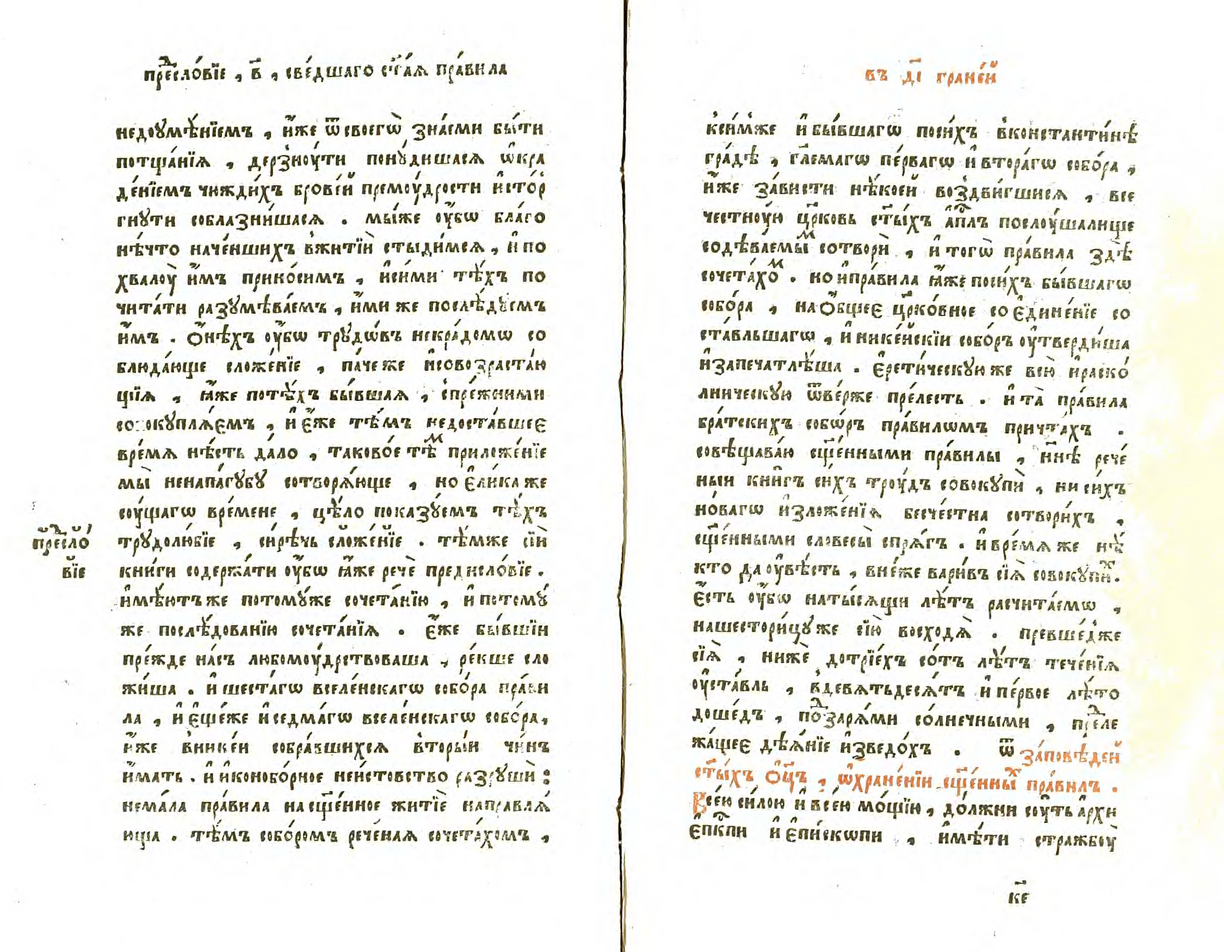 пре́сло́вїе , в҃ , све́дшаго ст҃а́ѧ пра́вила
недоѹмѣ́нїемъ , и҆́же ѿ своегѡ̀ зна́еми бы́ти
потща́нїѧ , дерзноѹ́ти понꙋ́дишасѧ ѡ҆кра
де́нїемъ чꙋжди́хъ брове́й премоѹ́дрости и҆сто́р
гнꙋти соблазни́шасѧ . мы́же ᲂу҆́бѡ бла́го
нѣ́что наче́ншихъ в̾житїѝ стыди́мсѧ , и҆ по
хвалоѹ̀ и҆̀мъ прино́симъ , и҆си́ми тѣ́хъ по
чита́ти разꙋмѣ́ваемъ , и҆́ми же послѣ́дꙋемъ
и҆́мъ . ѻ҆нѣ́хъ ᲂу҆́бѡ трꙋдѡ́въ некра́домѡ со
блюда́юще сложе́нїе , па́че же и҆совозраста́ю
щїѧ , ꙗ҆́же потѣ́хъ бы́вшаѧ , спре́жними
совокꙋплѧ́емъ , и҆ є҆́же тѣ́мъ недоста́вшее
вре́мѧ нѣ́сть дало̀ , таково́е тѣ́м приложе́нїе
мы̀ ненапа́гꙋбꙋ сотворѧ́юще , но є҆ли́ка же
соѹ́щагѡ вре́мене , цѣ́ло пока́зꙋемъ тѣ́хъ
трꙋдолю́бїе , си́рѣчь сложе́нїе . тѣ́мже сїѝ
пре́сло́
вїе
кни́ги содержа́ти ᲂу҆́бѡ ꙗ҆́же речѐ преди́словїе .
и҆мѣ́ютъ же потомꙋ́же сочета́нїю , и҆ потомꙋ́
же послѣ́дованїю сочета́нїѧ . є҆́же бы́вшїи
пре́жде на́съ любомоѹ́дрствоваша , ре́кше сло
жи́ша . и҆ шеста́гѡ вселе́нскагѡ собо́ра пра́ви
ла , и҆ є҆ще́же и҆ седма́гѡ вселе́нскагѡ собо́ра ,
и҆́же в̾нике́и собра́вшихсѧ вторы́и чи́нъ
и҆́мать . и҆ иконобо́рное неи́стовство разрꙋшѝ :
нема́ла пра́вила на сщ҃е́нное житїѐ направлѧ́
юща . тѣ́мъ собо́ромъ рече́наѧ сочета́хомъ ,
въ д҃і гране́й
к̾си́мже и҆ бы́вшагѡ поси́хъ в̾константи́нѣ
гра́дѣ , гл҃емагѡ пе́рвагѡ и҆ втора́гѡ собо́ра ,
и҆́же за́висти нѣ́коей воздви́гшисѧ , все
честнꙋ́ю цр҃ковь ст҃ы́хъ а҆пл҃ъ послоѹ́шалище
содѣ́ваемы́м сотворѝ , и҆ тогѡ̀ пра́вила здѣ̀
сочета́хом . но и҆ пра́вила ꙗ҆́же поси́хъ бы́вшагѡ
собо́ра , на ѻ҆́бщее цр҃ко́вное соедине́нїе со
ста́вльшагѡ , и҆ нике́йскїи собо́ръ ᲂу҆тверди́ша
и҆запечатлѣ́ша . є҆рети́ческꙋю же всю̀ и҆раско́
лническꙋю ѿве́рже пре́лесть . и҆ та̀ пра́вила
бра́тскихъ собѡ́ръ пра́вилѡмъ причта́хъ .
совѣща́ваю сщ҃е́нными пра́вилы , нн҃ѣ рече́
ныи кни́гъ си́хъ троѹ́дъ совокꙋпѝ , ни си́хъ
но́вагѡ и҆зложе́нїѧ безче́стна сотвори́хъ ,
сщ҃е́нными словесы̀ спрѧ́гъ . и҆ вре́мѧ же нѣ́
кто да ᲂу҆вѣ́сть , вне́же вари́въ сїѧ̀ совокꙋпи́х.
є҆́сть ᲂу҆́бѡ на ты́сѧщи лѣ́тъ расчита́емѡ ,
на шестори́цꙋ же сїю̀ восходѧ̀ . превше́дже
сїѧ̀ , ни́же до трїе́хъ со́тъ лѣ́тъ тече́нїѧ
ᲂу҆ста́вль , в̾девѧтьдесѧ́тъ и҆ пе́рвое лѣ́то
доше́дъ , под̾зарѧ́ми со́лнечными , пре́дле
жа́щее дѣѧ́нїе и҆зведо́хъ . ѿ за́повѣдей
ст҃ы́хъ ѻ҆ц҃ъ , ѡ҆хране́нїи сщ҃е́нных пра́вилъ .
Все́ю си́лою и҆ все́ю мо́щїю , до́лжни соѹ́ть архи
є҆пк҃пи и҆ є҆пи́скѡпи , и҆мѣ́ти стра́жбоѹ
к҃е